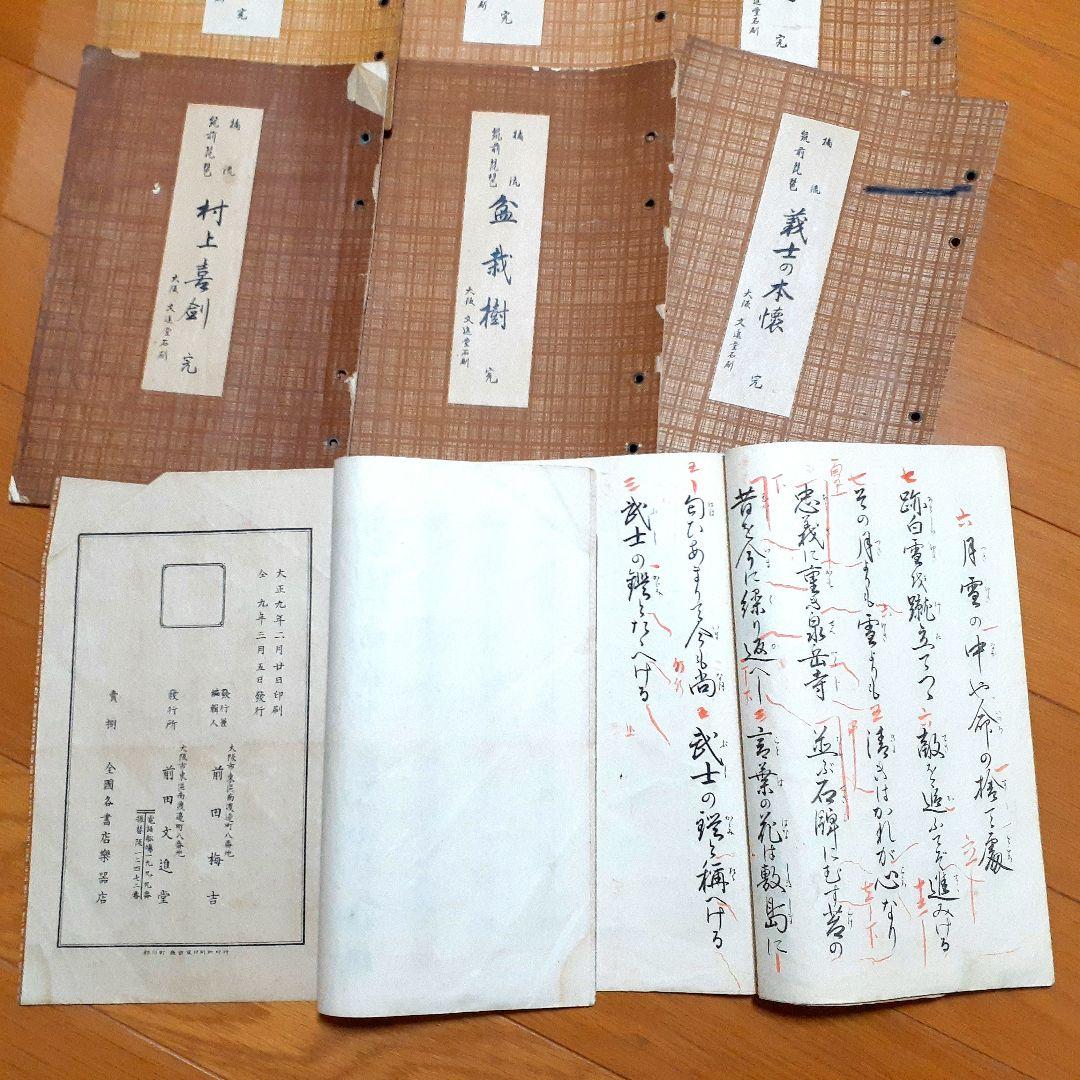 完
完
完
橘流
筑前琵琶
村上喜劍
完
大阪 文進堂石刷
橘流
筑前琵琶
盆栽樹
完
大阪 文進堂石刷
橘流
筑前琵琶
義士の本懐
完
大阪 文進堂石刷
六 月雪の中や命の捨て處
七 跡白雪を蹴立てつゝ 六 敵を追ふてぞ進みける
七 その月よりも雪よりも 五 清きはかれが心なり
忠義に重き泉岳寺 並ぶ石碑にむす苔の
昔を今に繰り返へし 三 言葉の花は敷島に
五 匂ひありて今も尚 五 武士の鑑と稱へける
三 武士の鑑とたゝへける
大正九年二月廿日印刷
仝 九年三月五日發行
大阪市東區南渡邊町八番地
發行兼編輯人 前田梅吉
大阪市東區南渡邊町八番地
發行所 前田文進堂
電話船場一九九九番
振替阪一二四七三番
賣捌 全國各書店樂器店